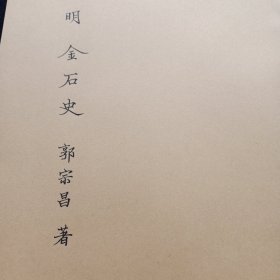 明 金石史 郭宗昌 著